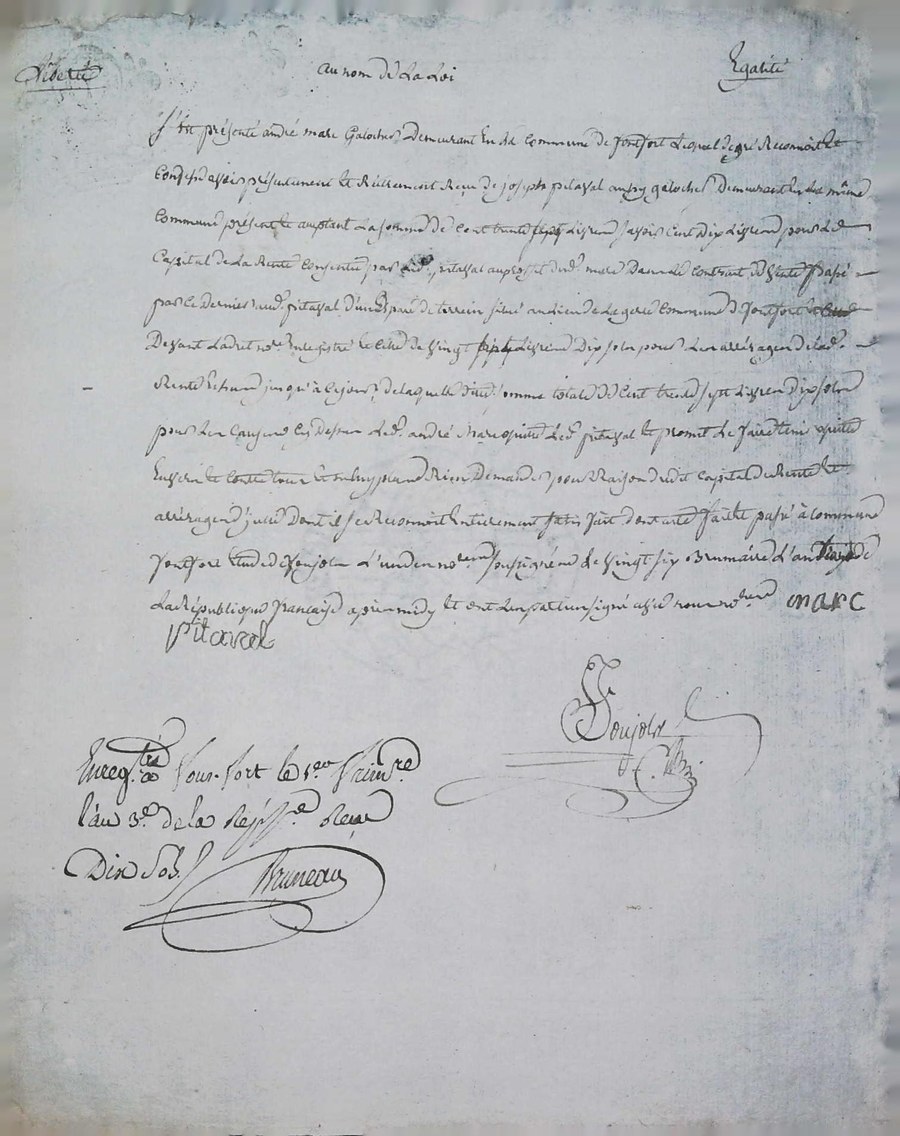 Liberté au nom de La Loi Egalité
S'est présenté andré marc Galoches Demeurant En La Commune de fontfort Lequel Reconnoit Et
Confesse avoir présentement Et Réellement Reçu de joseph pitaval Galoches Demeurant En La même
Commune présent Et aceptant La Somme De Cent trente sept Livres Savoir Cent Dix Livres pour Le
Capital de La Rente Consentie par Led. pitaval au profit dud. marc Dans le Contrat de Vente passé
par Ce Dernier aud. pitaval d'un Espace de terrein Situé au lieu de Commune de fontfort
Devant Ladret nore Enregistré Et Celle de Vingt sept Livres Dix Sols pour Les arrérages de lad.
Rente Echus jusqu'à Ce jour, de laquelle Somme totale de Cent trente Sept Livres Dix Sols
pour Les Causes Cy Dessus Led. andré Marc quitte Led. pitaval Et promet Le faire tenir quitte
Envers Et Contre tous Et ne luy plus Rien Demander pour Raison dudit Capital de Rente Et
arrérages Dont il Se Reconnoit Entierement Satisfait dont acte fait Et passé à Commune
fontfort Etude de Poujols L'un des nores Soussignés Le Vingt Six Brumaire L'an de
La République française après midy Et ont Les parties signé avec nous nores marc
Pitaval
Poujols
Enregtré a Fons-fort le 1er Frimre
l'an 3e de la Répque Reçu
Dix Sols
Bruneau